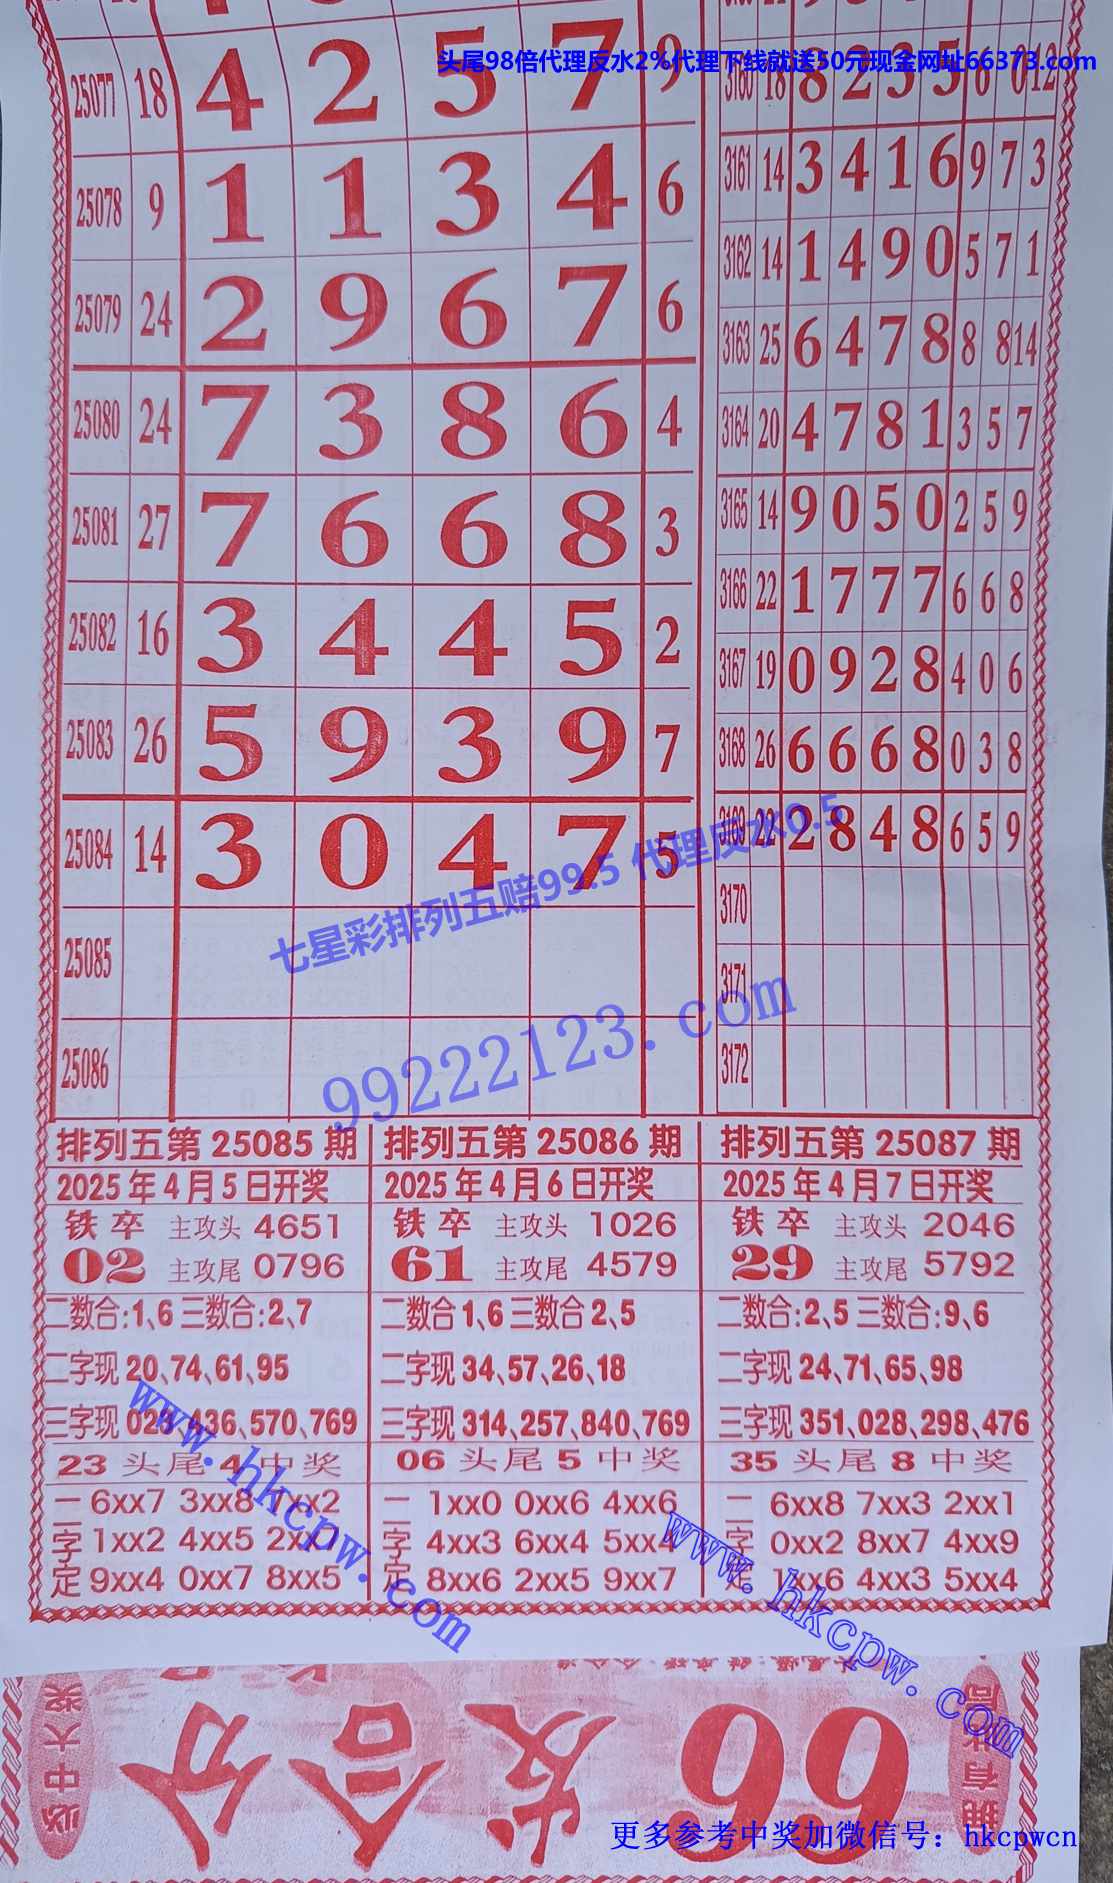 头尾98倍代理反水2%代理下线就送50元现金网址66373.com
25077 18 4 2 5 7 9
3160 18 8 2 3 5 6 0 12
25078 9 1 1 3 4 6
3161 14 3 4 1 6 9 7 3
3162 14 1 4 9 0 5 7 1
25079 24 2 9 6 7 6
3163 25 6 4 7 8 8 8 14
25080 24 7 3 8 6 4
3164 20 4 7 8 1 3 5 7
25081 27 7 6 6 8 3
3165 14 9 0 5 0 2 5 9
3166 22 1 7 7 7 6 6 8
25082 16 3 4 4 5 2
3167 19 0 9 2 8 4 0 6
25083 26 5 9 3 9 7
3168 26 6 6 6 8 0 3 8
25084 14 3 0 4 7 5
3169 22 2 8 4 8 6 5 9
3170
25085
3171
25086
3172
七星彩排列五赔99.5 代理反水0.5
99222123.com
排列五第 25085 期
2025年4月5日开奖
铁卒 主攻头 4651
02 主攻尾 0796
二数合:1、6 三数合:2、7
二字现 20、74、61、95
三字现 02 436、570、769
23 头尾 4 中奖
二字定
6xx7 3xx8 1xx2
1xx2 4xx5 2xx
9xx4 0xx7 8xx5
排列五第 25086 期
2025年4月6日开奖
铁卒 主攻头 1026
61 主攻尾 4579
二数合1、6 三数合2、5
二字现 34、57、26、18
三字现 314、257、840、769
06 头尾 5 中奖
二字定
1xx0 0xx6 4xx6
4xx3 6xx4 5xx4
8xx6 2xx5 9xx7
排列五第 25087 期
2025年4月7日开奖
铁卒 主攻头 2046
29 主攻尾 5792
二数合:2、5 三数合:9、6
二字现 24、71、65、98
三字现 351、028、298、476
35 头尾 8 中奖
二字定
6xx8 7xx3 2xx1
0xx2 8xx7 4xx9
1xx6 4xx3 5xx4
www.hkcpw.com
www.hkcpw.com
必中大奖
66
拥有
更多参考中奖加微信号：hkcpwcn